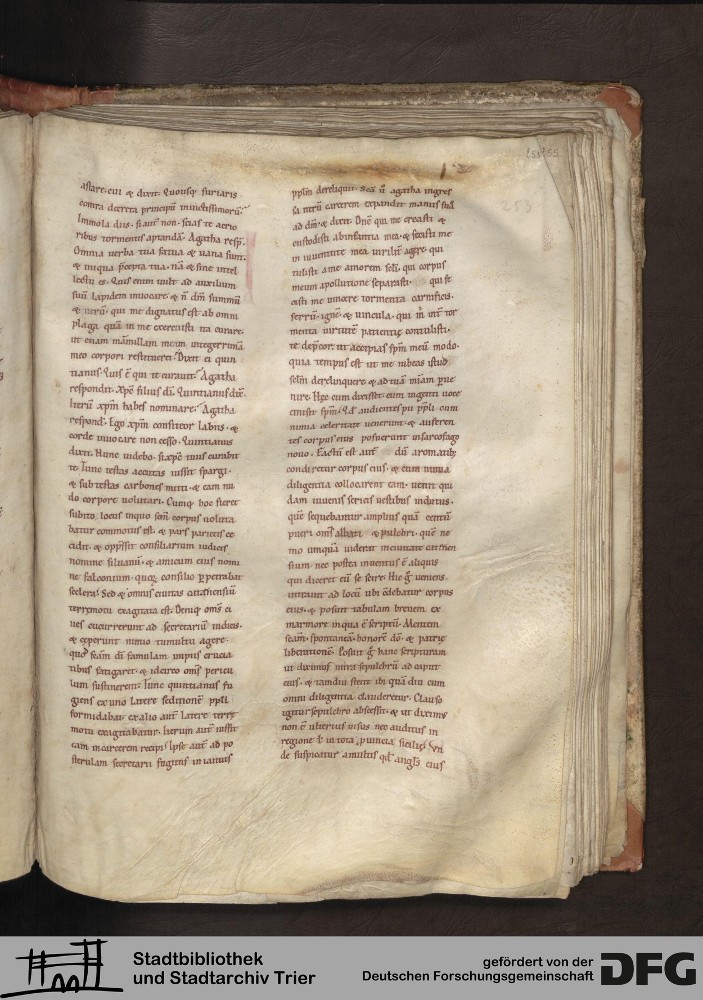 astare. cui & dixit. Quousq; furiaris
contra decreta principū inuictissimorū.
Immola diis. si aut̄ non. scias te acrio
ribus tormentis aptandā. Agatha resp̄.
Omnia uerba tua fatua & uana sunt.
& iniqua p̄cepta tua. nā & sine intel
lectu es. Quis enim uult ad auxilium
suū lapidem inuocare. & n̄ dm̄ summū
& uerū. qui me dignatus est ab omni
plaga quā in me exercuisti ita curare.
ut etiam mamillam meam integerrimā
meo corpori restitueret. Dixit ei quin
tianus. Quis ē qui te curauit. Agatha
respondit. Xp̄c filius dī. Quintianus dix̄.
Iterū xp̄m habes nominare. Agatha
respond̄. Ego xp̄m confiteor labiis. &
corde inuocare non cesso. Quintianus
dixit. Nunc uidebo. si xp̄c tuus curabit
te. Tunc testas accutas iussit spargi.
& sub testas carbones mitti. & eam nu
do corpore uolutari. Cumq; hoc fieret
subito locus in quo scm̄ corpus uoluta
batur commotus est. & pars parietis ce
cidit. & opp̄ssit consiliarium iudicis
nomine siluanū. & amicum eius nomi
ne falconium. quoꝝ consilio p̄petrabat
scelera. Sed & omnis ciuitas catisensiū
terremotu exagitata est. Deniq; om̄s ci
ues cucurrerunt ad secretariū iudicis.
& ceperunt nimio tumultu agere.
quod scām dī famulam impiis crucia
tibus fatigaret. & idcirco om̄s pericu
lum sustinerent. Tunc quintianus fu
giens ex uno latere seditionē pp̄li
formidabat. ex alio aut̄ latere terrę
motu exagitabatur. Iterum aut̄ iussit
eam in carcerem recipi. Ipse aut̄ ad po
sterulam secretarii fugiens in ianuis
pp̄lm dereliquit. Scā ū agatha ingres
sa iterū carcerem expandit manus suā
ad dm̄. & dixit. Dn̄e qui me creasti &
custodisti ab infantia mea. & fecisti me
in iuuentute mea uirilit̄ agere. qui
tulisti a me amorem sclī. qui corpus
meum a pollutione separasti. qui fe
cisti me uincere tormenta carnificis.
ferrū. ignē. & uincula. qui m̄ int̄ tor
menta uirtutē patientię contulisti.
te dep̄cor. ut accipias sp̄m meū modo.
quia tempus est ut me iubeas istud
sclm̄ derelinquere & ad tuā miām p̄ue
nire. Hęc cum dixisset. cum ingenti uoce
emisit sp̄m. Qd̄ audientes pii pp̄li. cum
nimia celeritate uenerunt. & auferen
tes corpus eius posuerunt in sarcofago
nouo. Factū est aut̄ dū aromatib;
condiretur corpus eius. & cum nimia
diligentia collocarent eam. uenit qui
dam iuuenis sericis uestibus indutus.
quē sequebantur amplius quā centū
pueri om̄s albati & pulchri. quē ne
mo umquā uiderat in ciuitate catinen
sium. nec postea inuentus ē aliquis
qui diceret eū se scire. Hic g̊ ueniens.
intrauit ad locū ubi c̄debatur corpus
eius. & posuit tabulam breuem ex
marmore in qua ē scriptū. Mentem
scām. spontaneā. honorē dō. & patrię
liberationē. Posuit g̊ hanc scripturam
ut diximus intra sepulchrū ad caput
eius. & tamdiu stetit ibi quā diu cum
omni diligentia clauderetur. Clauso
igitur sepulchro abscessit. & ut diximus
non ē ulterius uisus nec auditus in
regione ł in tota p̄uincia sicilię. Vn
de suspicatur a multis qd̄ angl̄s eius
253
Stadtbibliothek
und Stadtarchiv Trier
gefördert von der
Deutschen Forschungsgemeinschaft
DFG